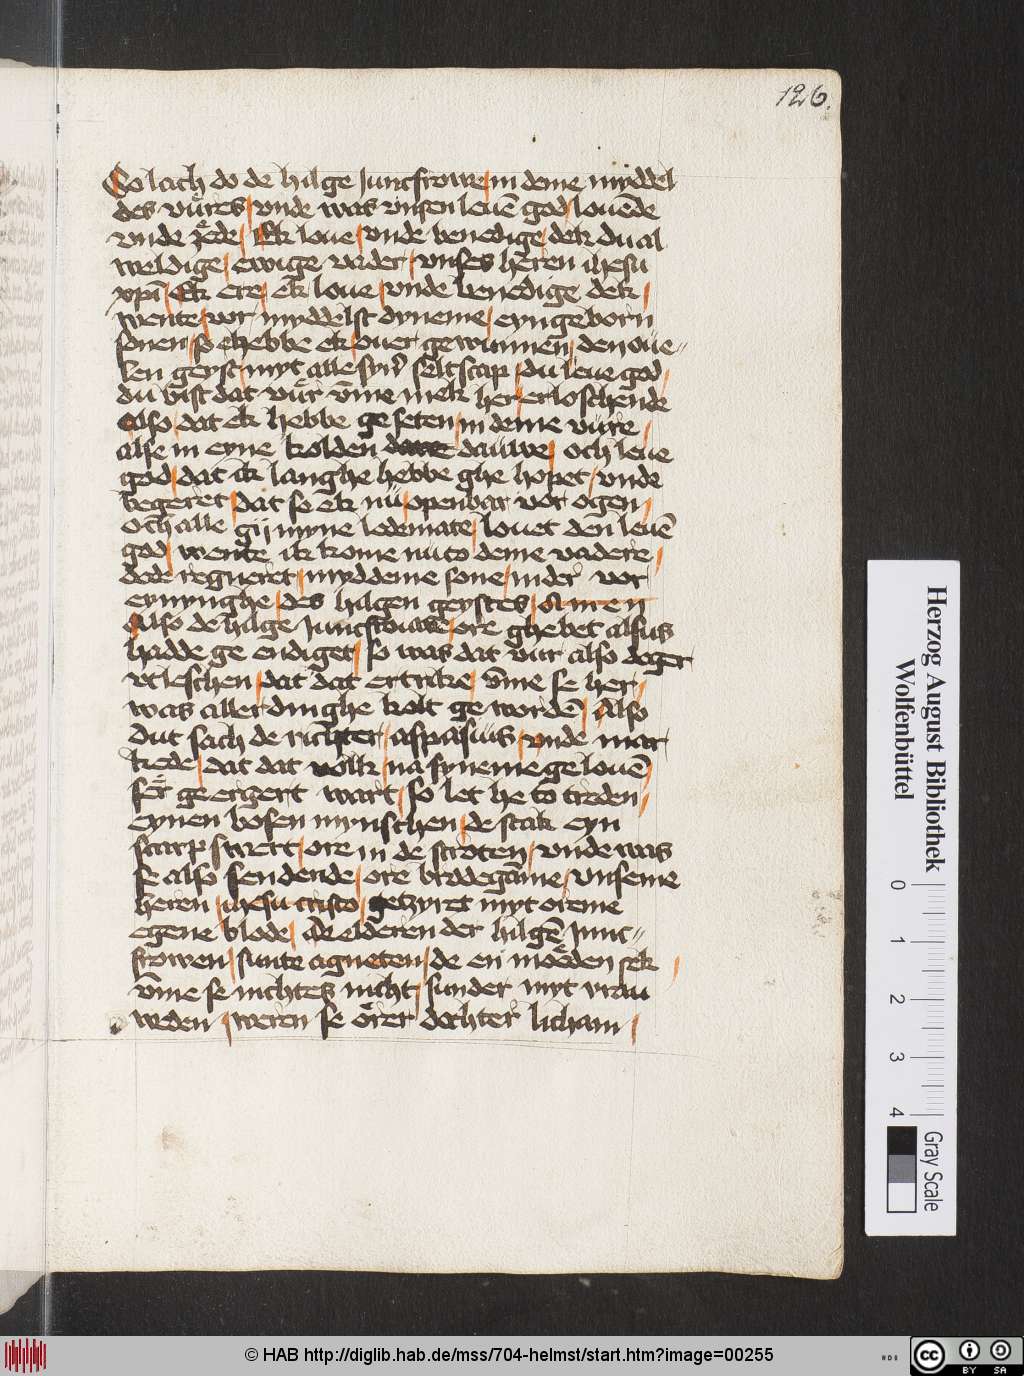 126.
So lach do de hilge Juncfrowe / in deme myddel
des vüres / vnde was vnsen leuē god / louēde
vnde zede / Ek loue / vnde benedige / dek du al
weldige / ewige vader / vnses heren ihesu
xpī / Ek ere / ek loue / vnde benedige dek /
wente / vor myddelst dyneme / eyngeborn
sonen / so ehebbe ek / ouer gewunnen / den öue〃
len geyst / myt alle syn selscap / du leue god /
du bist dat vür vm̄e mek her / erloschende
Also / dat ek hebbe geseten / in deme vüre /
alse in eyne kolden dauwe / och leue
god / dat ik langhe hebbe ghe hopet / vnde
begeret / dat so ek nü / openbar vor ogen /
och alle gij myne ledemate / louet den leuē
god / wente ik kome nu to deme vadere /
dede regneret / myddeme sone / in der vor
eynynghe / des hilgen geystes / amen
Also de hilge Juncfrouwe / ore ghebet alsus
hadde ge endiget / so was dat vur also deger
vtleschen / dat dat ertrike / vm̄e se her /
was aller dinghe kolt ge wordē / Also
dut sach de richter / aspasius / vnde mar
kede / dat dat volk / na syneme gelouē /
ser geergert wart / so let he to treden /
eynen bosen mynschen / de stak eyn
scarp swert / ore in de stroten / vnde was
se also sendende / ore brudegām̄e / vnseme
heren / ihesu cristo / getzyret myt oreme
egene blode / de elderen der hilgē Junc〃
frowen / sunte agneten / de en möeden sek /
vm̄e se nichtes nicht / sunder myt vrau
weden / weren se örer dochter licham /
Herzog August Bibliothek
Wolfenbüttel
0 1 2 3 4
Gray Scale
© HAB http://diglib.hab.de/mss/704-helmst/start.htm?image=00255
cc BY SA